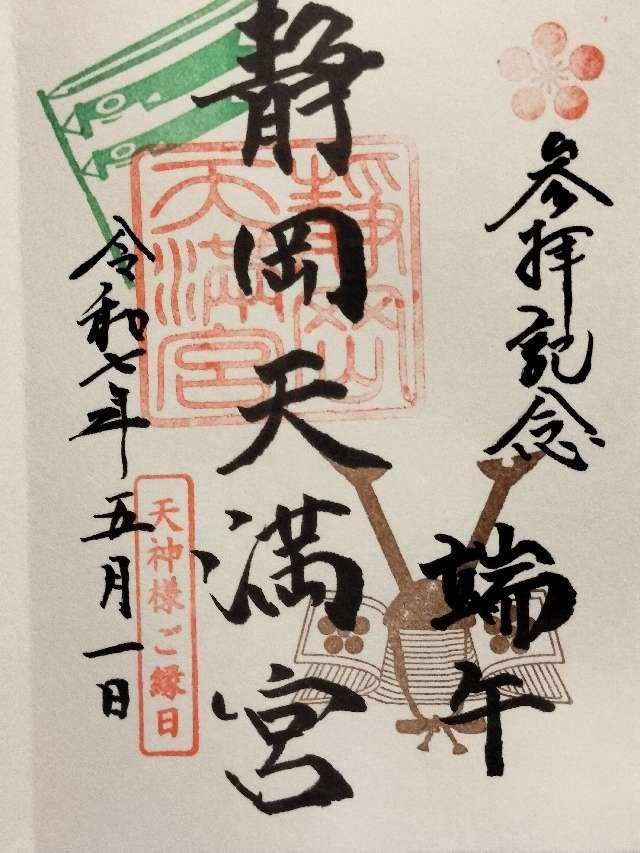 参拝記念
端午
静岡天満宮
静岡天満宮
天神様ご縁日
令和七年五月一日